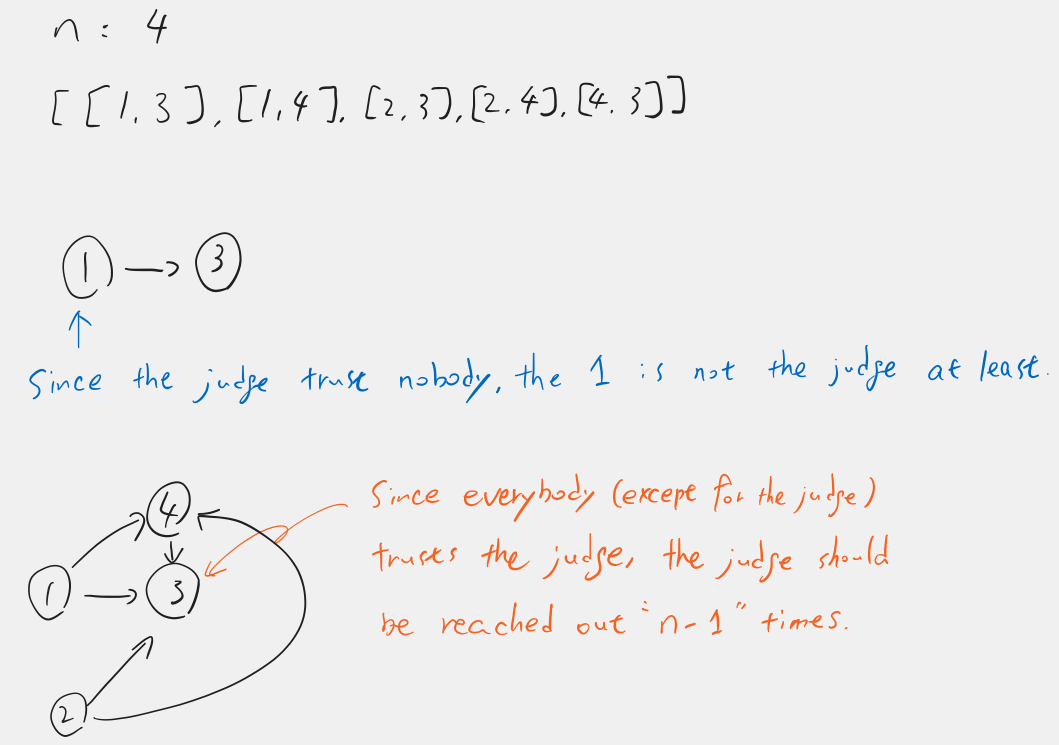 n : 4
[ [1, 3], [1, 4], [2, 3], [2, 4], [4, 3]]
1 → 3
↑
Since the judge trust nobody, the 1 is not the judge at least.
4
1 → 3
2
Since everybody (except for the judge)
trusts the judge, the judge should
be reached out "n-1" times.